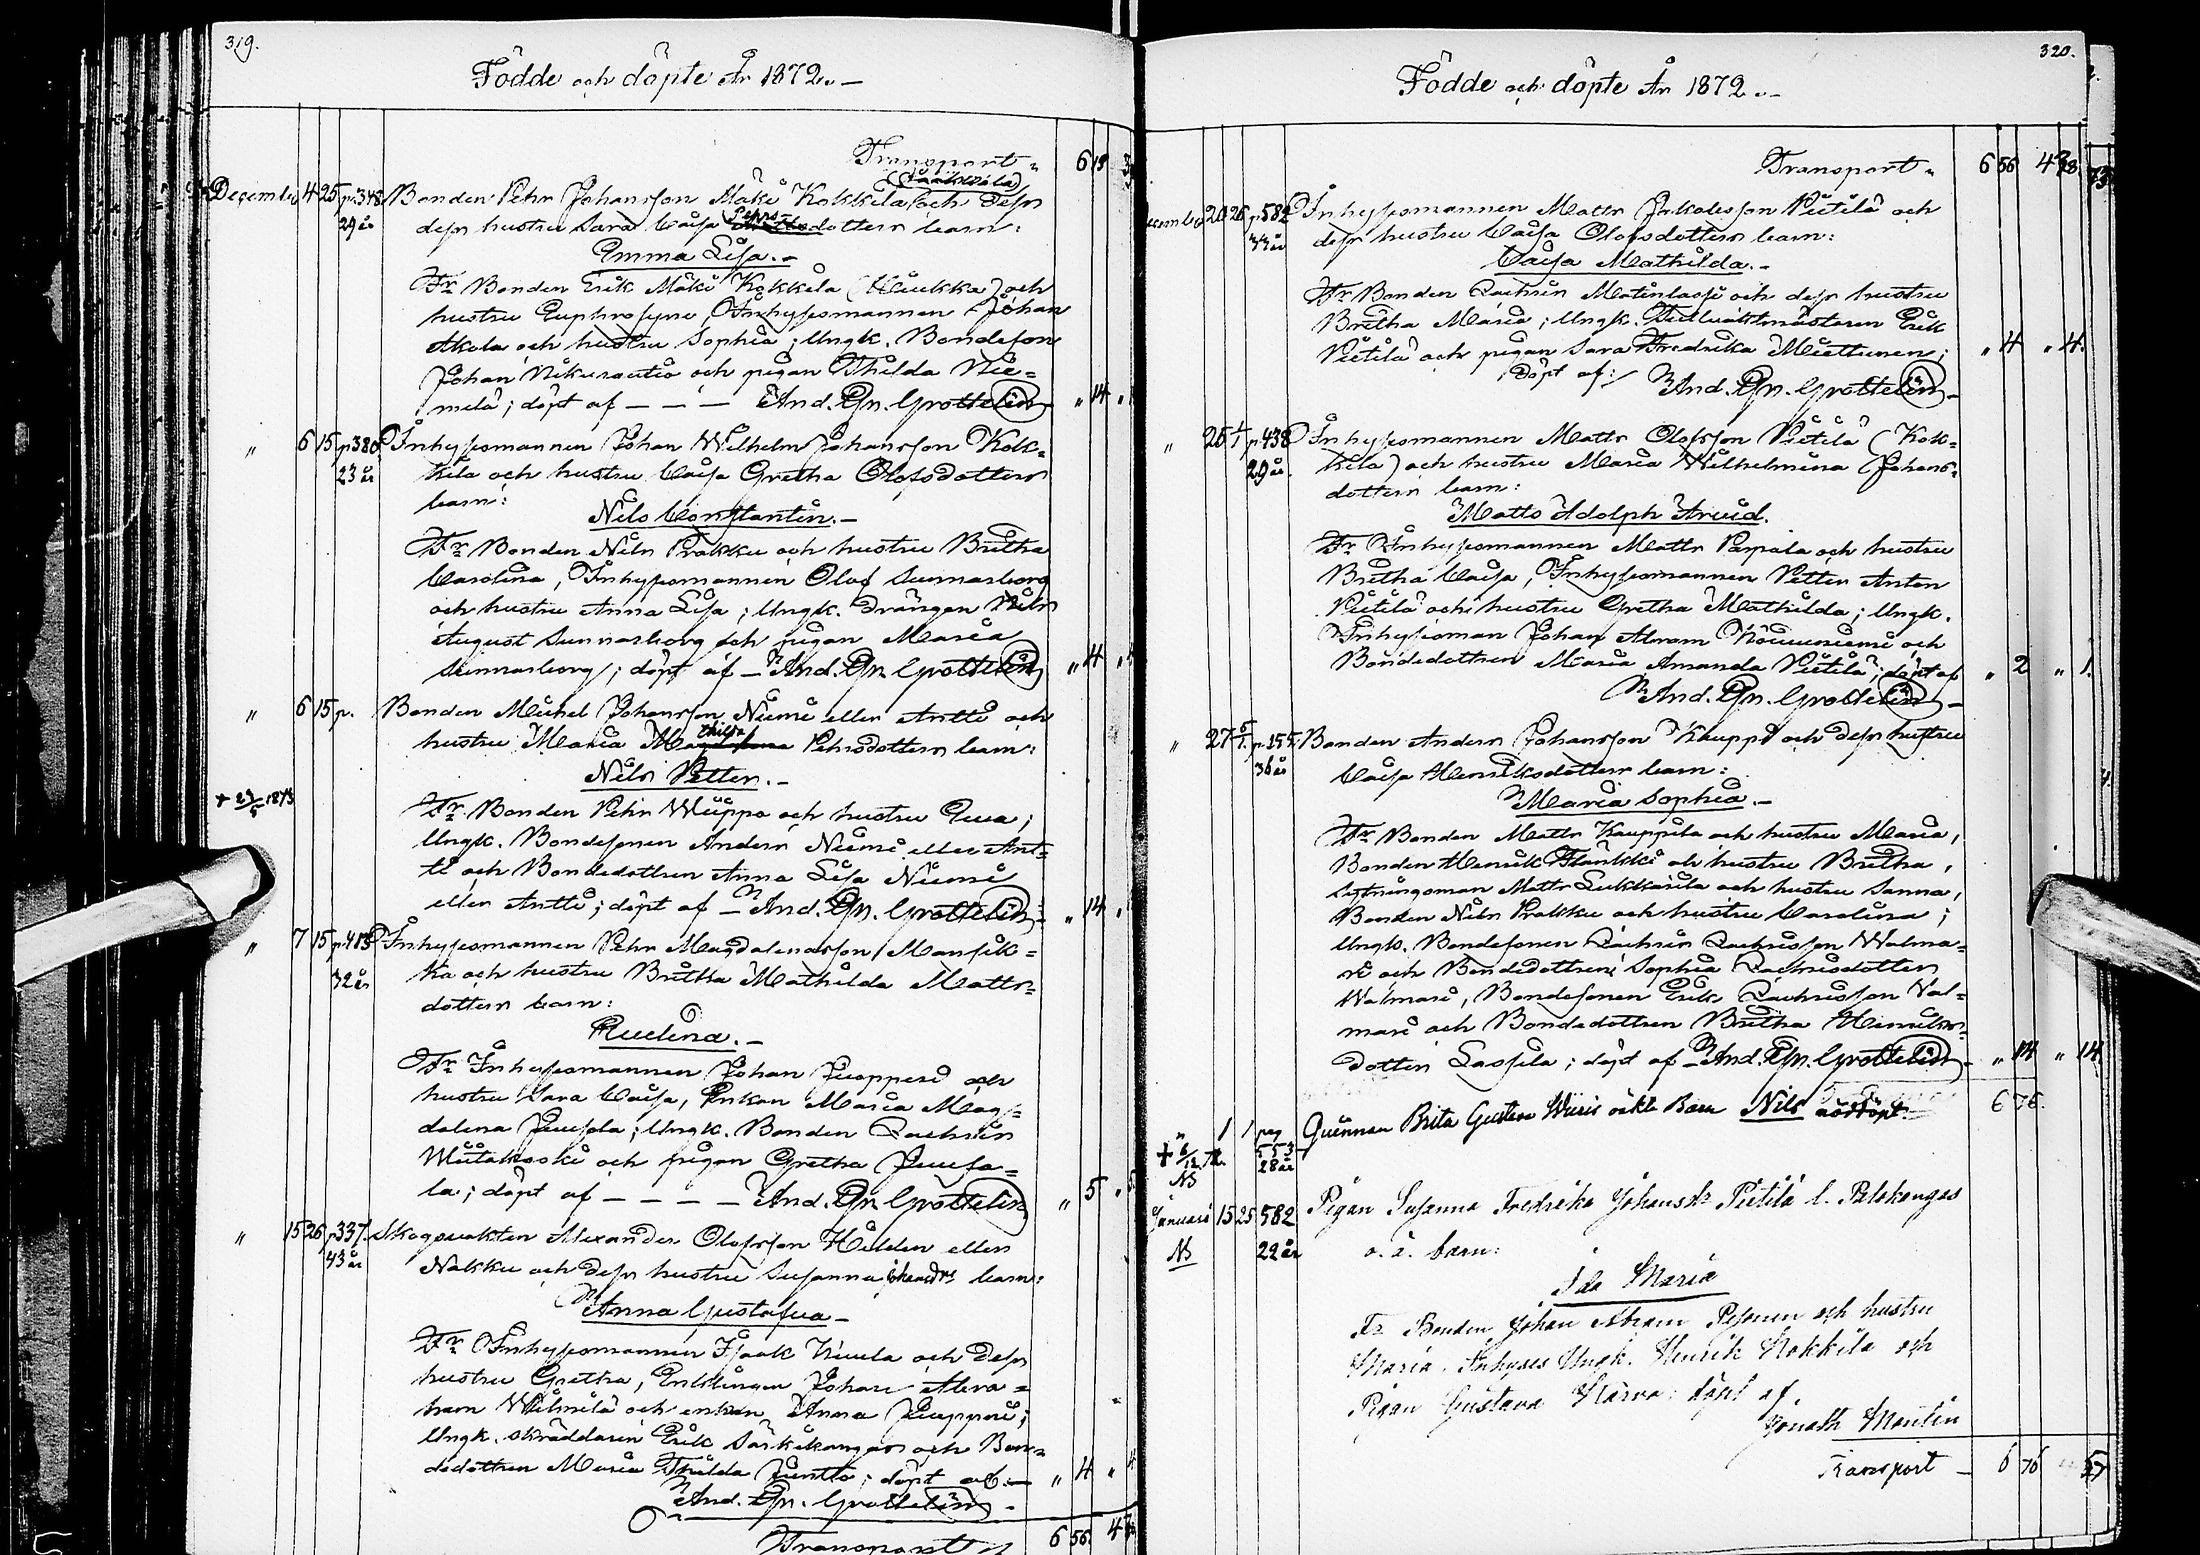 319.
Födde och döpte År 1872. –
Transport „ 6 19
(Jääkkola)
December 4 25 p. 348 Bonden Pehr Johansson Mäki Kokkila och dess
29 år dess hustru Sara Caisa Pehrsdotters barn:
Emma Lisa. –
Fr. Bonden Erik Mäki Kokkila (Kiukka) och
hustru Euphrosyne, Inhysesmannen Johan
Akola och hustru Sophia; Ungk. Bondeson
Johan Nikurautio och pigan Thilda Nie=
melä; döpt af – – – And. Gr. Grottelin „ 14 „
„ 6 15 p. 380 Inhysesmannen Johan Wilhelm Johansson Kok=
23 år kila och hustru Caisa Gretha Olofsdotters
barn:
Nils Constantin. –
Fr. Bonden Nils Prakku och hustru Britha
Carolina, Inhysesmannen Olof Sunnarborg
och hustru Anna Lisa; Ungk. Drängen Nils
August Sunnarborg och pigan Maria
Sunnarborg; döpt af – And. Gr. Grottelin „ 4 „
„ 6 15 p. Bonden Michel Johansson Niemi eller Antti och
hustru Maria Pehrsdotters barn:
Nils Petter. –
+ 23/5 1873
Fr. Bonden Pehr Wuppo och hustru Eva;
Ungk. Bondesonen Anders Niemi eller Ant=
ti och Bondedottren Anna Lisa Niemi
eller Antti; döpt af – And. Gr. Grottelin „ 14 „
„ 7 15 p. 483 Inhysesmannen Pehr Magdalenasson Mansik=
32 år ka och hustru Britha Mathilda Matts=
dotters barn:
Evelina. –
Fr. Inhysesmannen Johan Juopperi och
hustru Sara Caisa, Enkan Maria Mag=
dalena Juusola; Ungk. Bonden Zachris
Wiitakoski och pigan Gretha Juuso=
la; döpt af – – – – And. Gr. Grottelin „ 5 „ 5
„ 15 26 p. 337. Skogsvakten Alexander Olofsson Hilden eller
43 år Nakku och dess hustru Susanna Johansdrs barn:
Anna Gustafva –
Fr. Inhysesmannen Isaak Kiuela och dess
hustru Gretha, Enklingen Johan Abra=
ham Wilmilä och enkan Anna Juopperi;
Ungk. skräddaren Erik Särkikangas och Bon=
dedottren Maria Thilda Juntto; döpt af: – „ 4 „ 4
And. Gr. Grottelin –
Transport „ 6 56. 4
320.
Födde och döpte År 1872. –
Transport „ 6 56 4 28
December 20 26 p. 582 Inhysesmannen Matts Jakobsson Pietilä och
33 år dess hustru Caisa Olofsdotters barn:
Caisa Mathilda. –
Fr. Bonden Zachris Matinlassi och dess hustru
Britha Maria; Ungk. Tullvaktmästaren Erik
Pietilä och pigan Sara Fredrika Miettunen; „ 4 „ 4.
döpt af: And. Gr. Grottelin –
„ 26 1/1 p. 438 Inhysesmannen Matts Olofsson Pietilä (Kok=
29 år kila) och hustru Maria Wilhelmina Johans=
dotters barn:
Matts Adolph Arvid.
Fr. Inhysesmannen Matts Parpala och hustru
Britha Caisa, Inhysesmannen Petter Anton
Pietilä och hustru Gretha Mathilda; Ungk.
Inhysesman Johan Abram Kouvuniemi och
Bondedottren Maria Amanda Pietilä; döpt af „ 2 „ 1.
And. Gr. Grottelin –
„ 27 5/1. p. 155 Bonden Anders Johansson Kauppi och dess hustru
36 år Caisa Henriksdotters barn:
Maria Sophia. –
Fr. Bonden Matts Kauppila och hustru Maria,
Bonden Henrik Flänkki och hustru Britha,
Sytningsman Matts Lukkarila och hustru Sanna,
Bonden Nils Prakku och hustru Carolina;
Ungk. Bondesonen Zachris Zachrisson Walma=
ri och Bondedottren Sophia Zachrisdotter
Walmari, Bondesonen Erik Zachrisson Val=
mari och Bondedottren Britha Henriks=
dotter Lassila; döpt af – And. Gr. Grottelin – „ 14 „ 14
6 76.
„ 1 1 pag 553 Quinnan Brita Gustava Wiiris oäkta Barn Nils nöddöpt.
+ 6/12 72. 28 år
NB
Januari 15 25 582 Pigan Susanna Fredrika Johansdr Pietilä l. Palokangas
NB 22 år o. ä. barn:
Ida Maria
Fr. Bonden Johan Abram Pesonen och hustru
Maria. Inhyses Ungk. Henrik Kokkila och
Pigan Gustava Karvo: döpt af
Jonath. Montin
Transport – 6 76 57